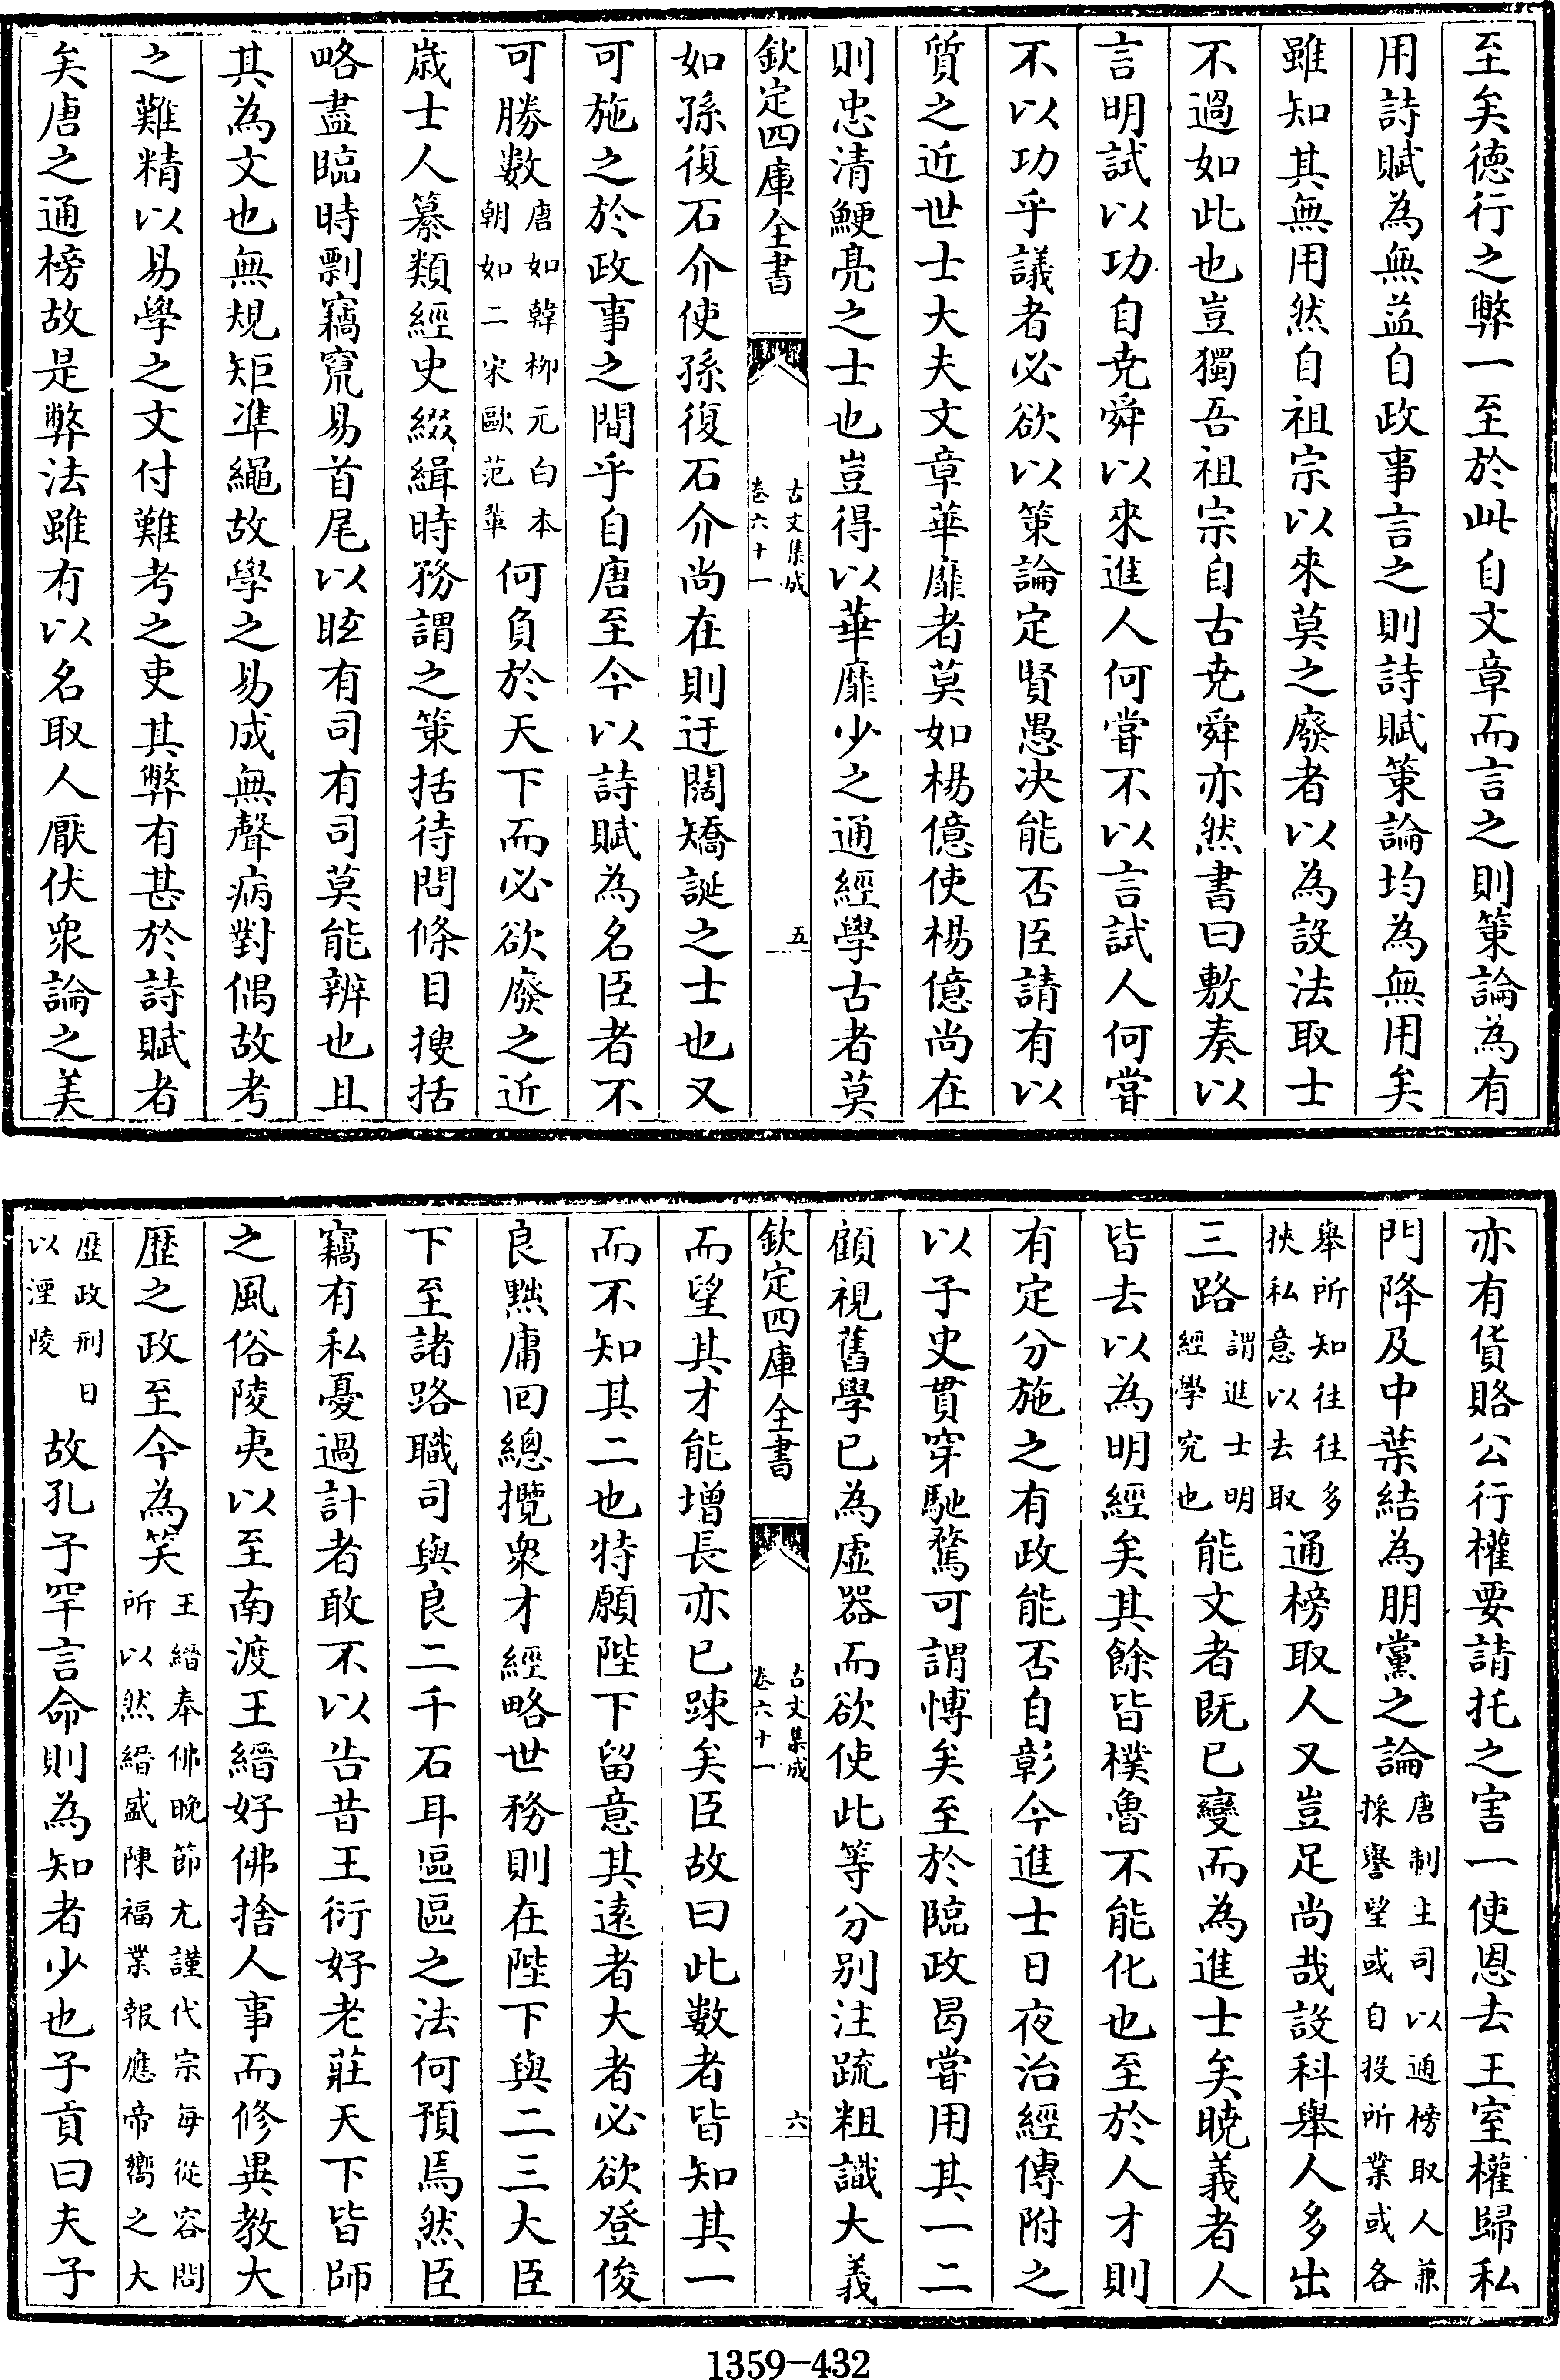 至矣德行之弊一至於此自文章而言之則策論為有
用詩賦為無益自政事言之則詩賦策論均為無用矣
雖知其無用然自祖宗以來莫之廢者以為設法取士
不過如此也豈獨吾祖宗自古堯舜亦然書曰敷奏以
言明試以功自堯舜以來進人何嘗不以言試人何嘗
不以功乎議者必欲以策論定賢愚决能否臣請有以
質之近世士大夫文章華靡者莫如楊億使楊億尚在
則忠清鯁亮之士也豈得以華靡少之通經學古者莫
欽定四庫全書
古文集成
卷六十一
五
如孫復石介使孫復石介尚在則迂闊矯誕之士也又
可施之於政事之間乎自唐至今以詩賦為名臣者不
可勝數唐如韓柳元白本朝如二宋歐范輩何負於天下而必欲廢之近
歲士人纂類經史綴緝時務謂之策括待問條目搜括
略盡臨時剽竊竄易首尾以眩有司有司莫能辨也且
其為文也無規矩準繩故學之易成無聲病對偶故考
之難精以易學之文付難考之吏其弊有甚於詩賦者
矣唐之通榜故是弊法雖有以名取人厭伏衆論之美
亦有貨賂公行權要請托之害一使恩去王室權歸私
門降及中葉結為朋黨之論唐制主司以通榜取人兼採譽望或自投所業或各
舉所知往往多挾私意以去取通榜取人又豈足尚哉設科舉人多出
三路謂進士明經學究也能文者既已變而為進士矣曉義者人
皆去以為明經矣其餘皆樸魯不能化也至於人才則
有定分施之有政能否自彰今進士日夜治經傳附之
以子史貫穿馳騖可謂博矣至於臨政曷嘗用其一二
顧視舊學已為虛器而欲使此等分別注疏粗識大義
欽定四庫全書
古文集成
卷六十一
六
而望其才能增長亦已踈矣臣故曰此數者皆知其一
而不知其二也特願陛下留意其遠者大者必欲登俊
良黜庸回總攬衆才經略世務則在陛下與二三大臣
下至諸路職司與良二千石耳區區之法何預焉然臣
竊有私憂過計者敢不以告昔王衍好老莊天下皆師
之風俗陵夷以至南渡王縉好佛捨人事而修異教大
歷之政至今為笑王縉奉佛晚節尤謹代宗每從容問所以然縉盛陳福業報應帝嚮之大
歷政刑日以湮陵故孔子罕言命則為知者少也子貢曰夫子
1359-432